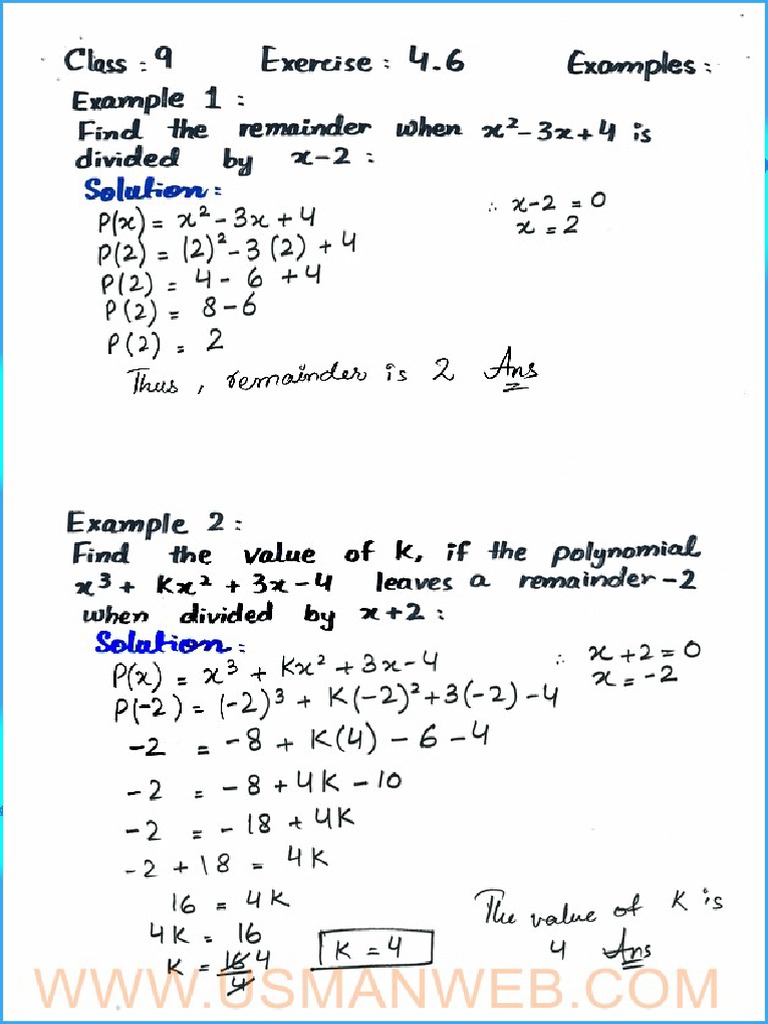 Class : 9 Exercise : 4.6 Examples :
Example 1 :
Find the remainder when x² - 3x + 4 is
divided by x - 2 :
Solution :
P(x) = x² - 3x + 4 ∴ x - 2 = 0
P(2) = (2)² - 3 (2) + 4 x = 2
P(2) = 4 - 6 + 4
P(2) = 8 - 6
P(2) = 2
Thus , remainder is 2 Ans
Example 2 :
Find the value of k, if the polynomial
x³ + Kx² + 3x - 4 leaves a remainder -2
when divided by x + 2 :
Solution :
P(x) = x³ + Kx² + 3x - 4 ∴ x + 2 = 0
P(-2) = (-2)³ + K(-2)² + 3(-2) - 4 x = -2
-2 = -8 + K(4) - 6 - 4
-2 = -8 + 4K - 10
-2 = -18 + 4K
-2 + 18 = 4K
16 = 4K
4K = 16
K = 16/4 4 K = 4 The value of K is
4 Ans
WWW.USMANWEB.COM